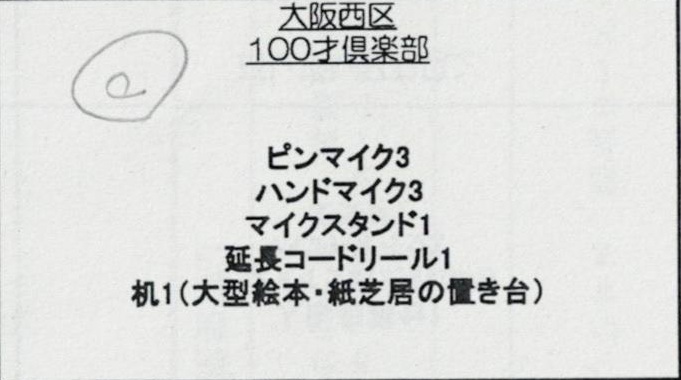 大阪西区
100才倶楽部
ピンマイク3
ハンドマイク3
マイクスタンド1
延長コードリール1
机1(大型絵本・紙芝居の置き台)